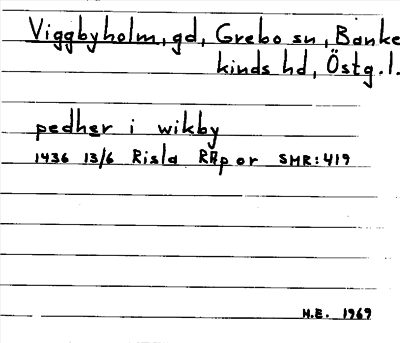 Viggbyholm, gd, Grebo sn, Banke
kinds hd, Östg.l.
pedher i wikby
1436 13/6 Risla RAp or SMR:419
H.E. 1969